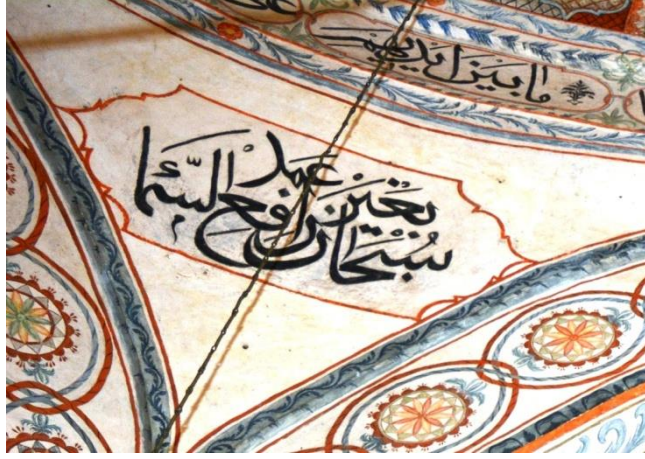 ما بين ايديهم
سُبْحَان رافع السّماء بغَيْر عمد